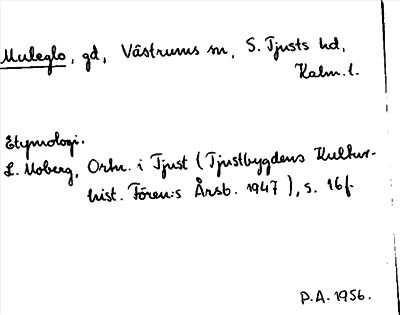 Muleglo, gd, Västrums sn, S. Tjusts hd,
Kalm. l.
Etymologi.
L. Moberg, Ortn. i Tjust (Tjustbygdens Kultur-
hist. Fören:s Årsb. 1947), s. 16f.
P.A. 1956.